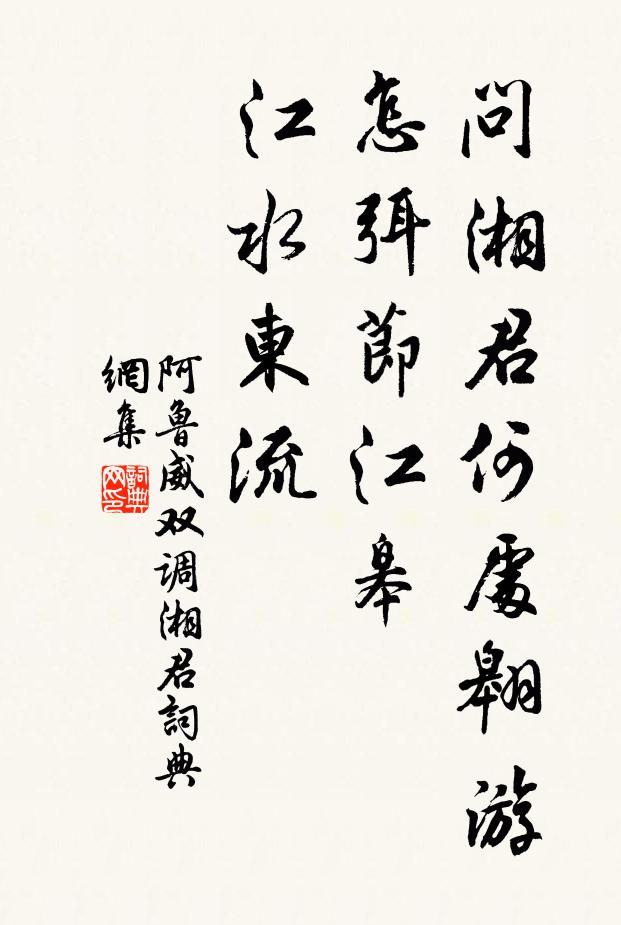 問湘君何處翱游
怎弭節江皋
江水東流
阿魯威双调湘君詞典
網集
詞典
网印